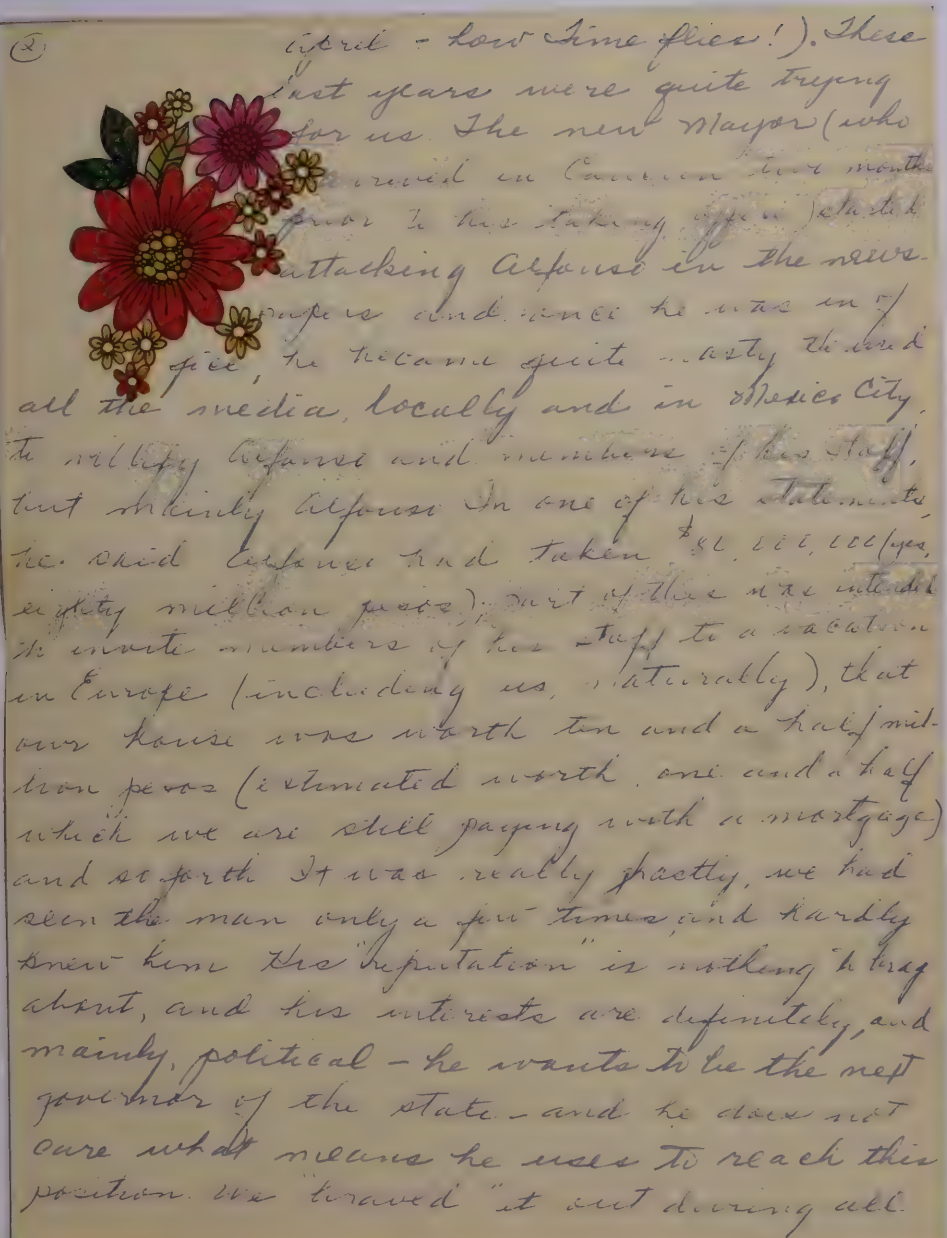 (2)
April - how time flies!). These
last years were quite trying
for us. The new Mayor (who
arrived in Cancun two months
prior to his taking office) started
attacking Alfonso in the news-
papers and once he was in of
fice, he became quite nasty. He used
all the media, locally and in Mexico City,
to vilify Alfonso and members of his staff,
but mainly Alfonso. In one of his statements,
he said Alfonso had taken $80,000,000 (yes,
eighty million pesos), part of this was intended
to invite members of his staff to a vacation
in Europe (including us, naturally), that
our house was worth ten and a half mil-
lion pesos (estimated worth one and a half
which we are still paying with a mortgage)
and so forth. It was really ghastly, we had
seen the man only a few times and hardly
knew him. His "reputation" is nothing to brag
about, and his interests are definitely, and
mainly, political - he wants to be the next
governor of the state - and he does not
care what means he uses to reach this
position. We "braved" it out during all